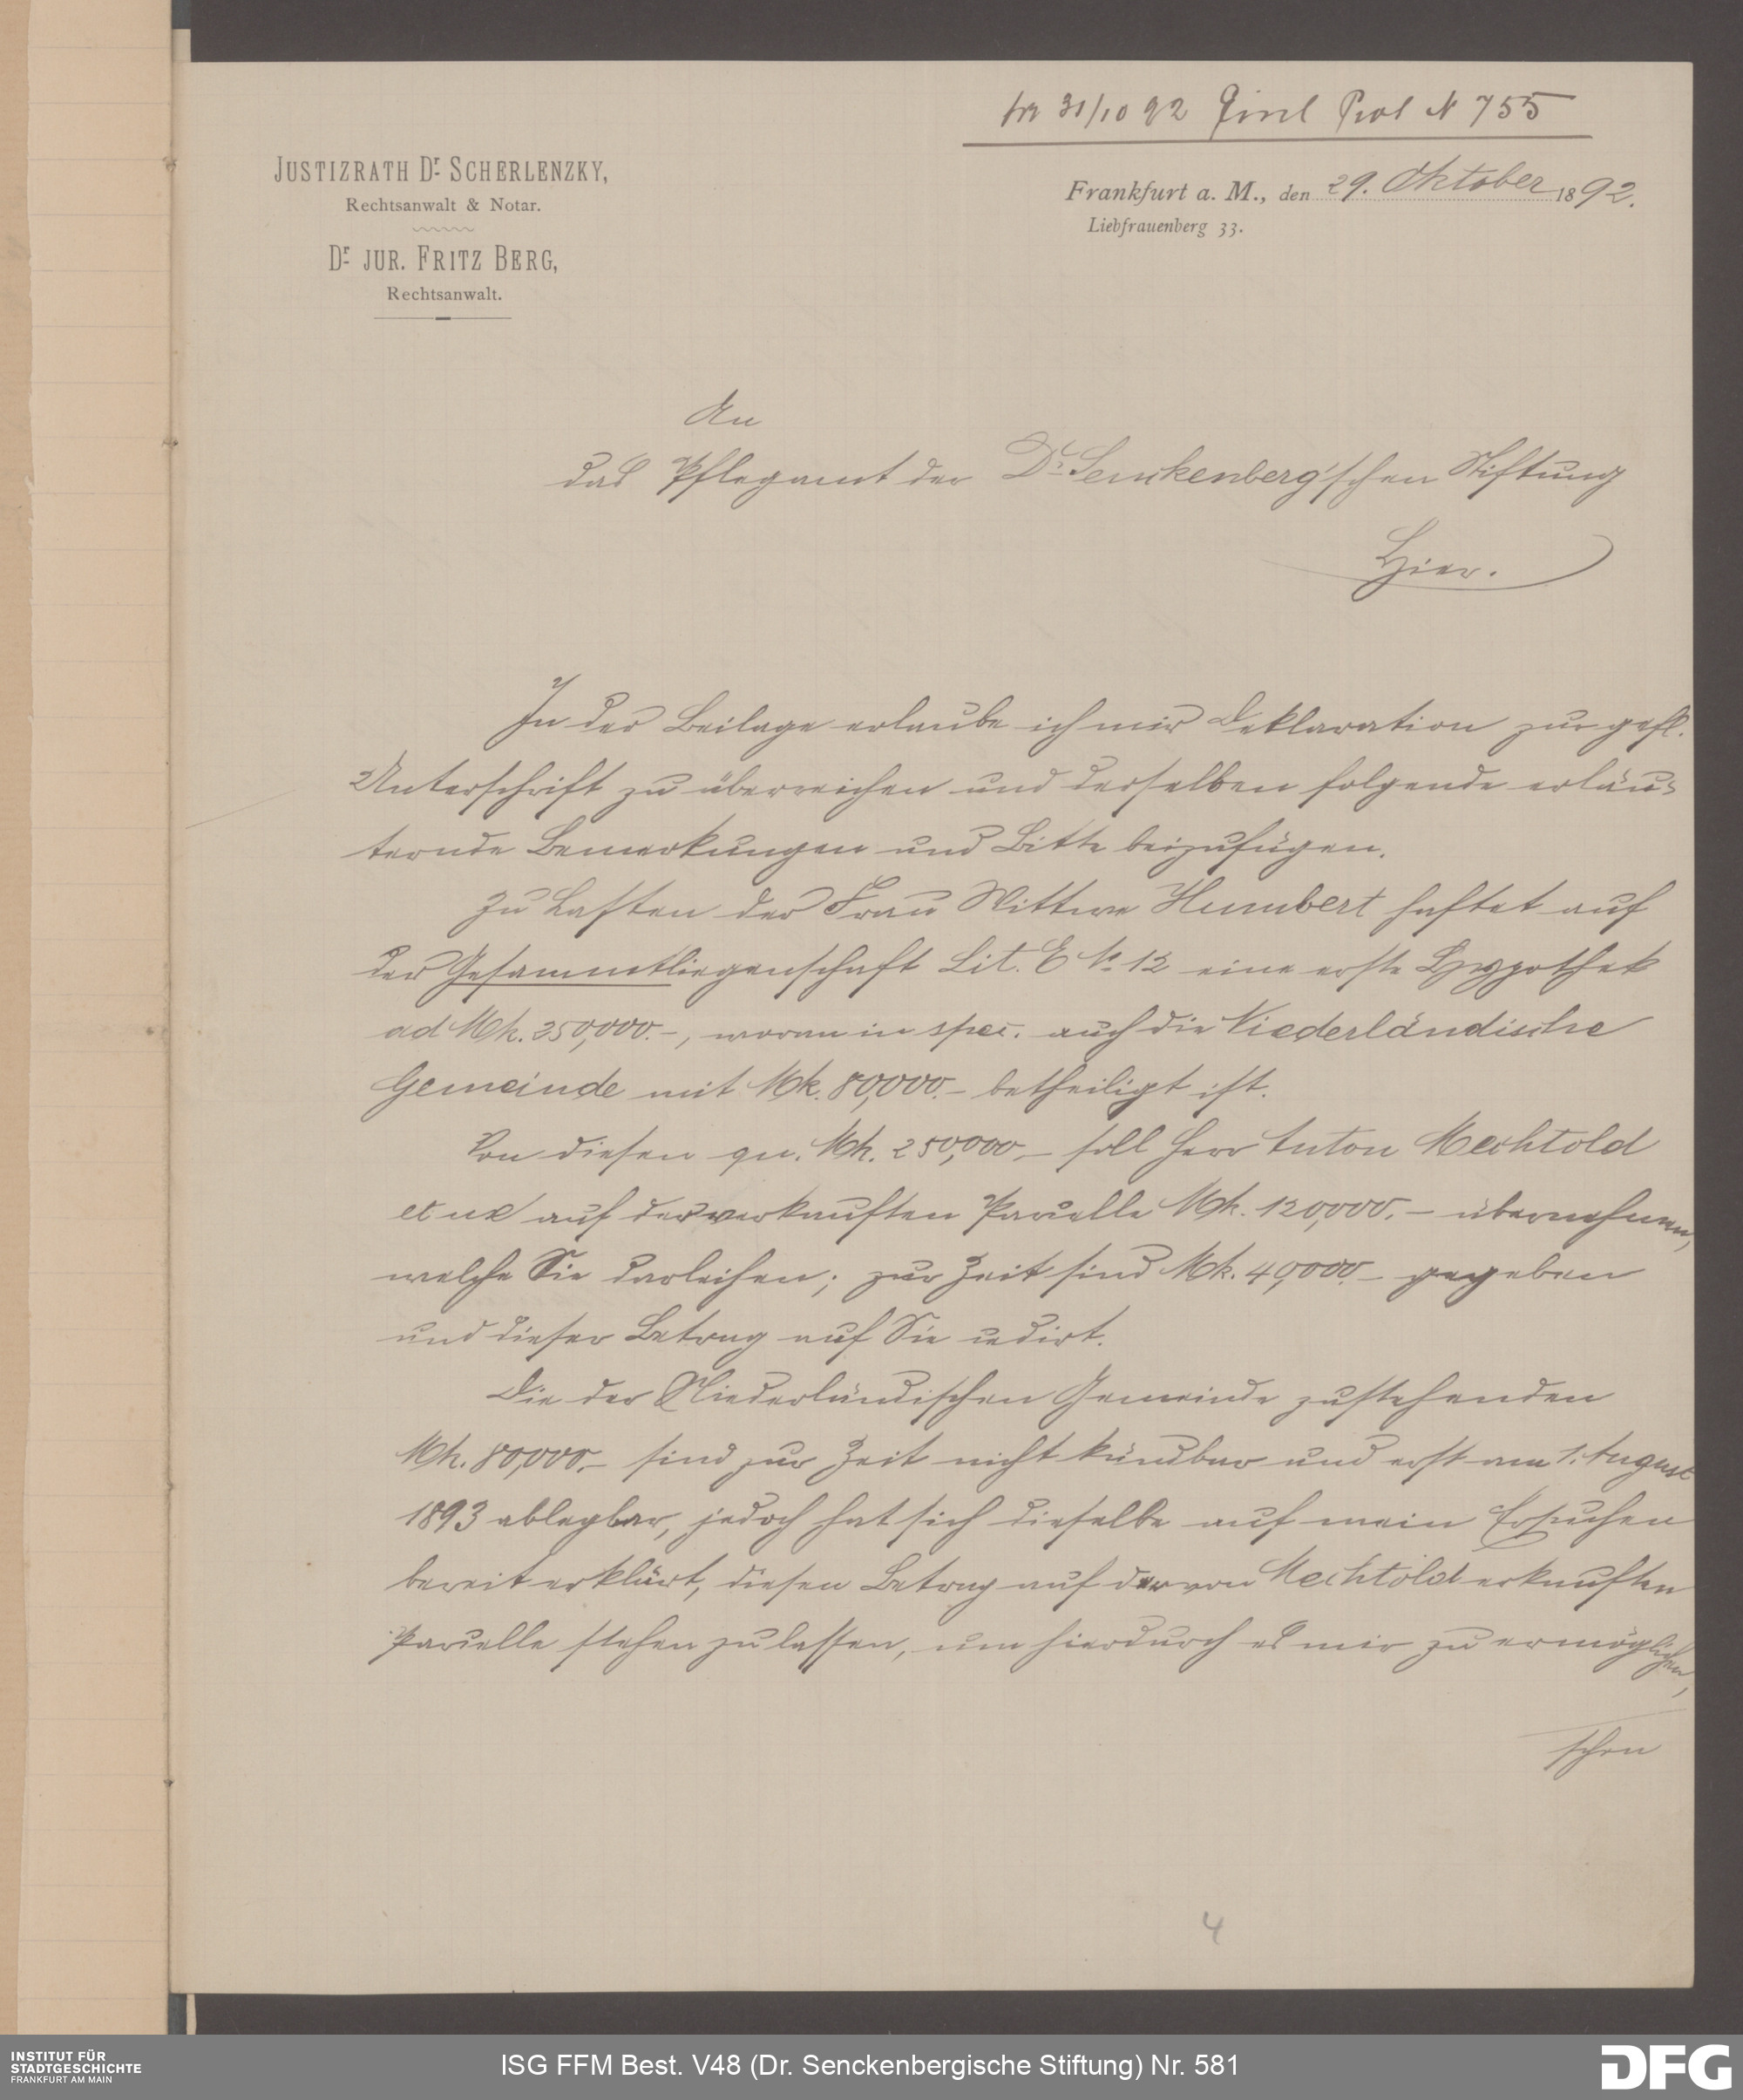 pr 31/10 92 Einl Prot N 755
JUSTIZRATH Dr. SCHERLENZKY,
Rechtsanwalt & Notar.
Dr. JUR. FRITZ BERG,
Rechtsanwalt.
Frankfurt a. M., den 29. Oktober 1892.
Liebfrauenberg 33.
An
das Pflegamt der Dr. Senckenberg'schen Stiftung
Hier.
In der Beilage erlaube ich mir Deklaration zur gefl.
Unterschrift zu überreichen und derselben folgende erläu-
ternde Bemerkungen und Bitte beizufügen.
Zu Lasten der Frau Wittwe Humbert haftet auf
der Gesammtliegenschaft Lit. E No. 12 eine erste Hypothek
ad Mk. 250,000.-, woran in spec. auch die Niederländische
Gemeinde mit Mk. 80,000.- betheiligt ist.
Von diesen qu. Mk. 250,000.- soll Herr Anton Mechtold
et ux auf der verkauften Parcelle Mk. 120,000.- übernehmen,
welche Sie darleihen; zur Zeit sind Mk. 40,000.- gegeben
und dieser Betrag auf Sie cedirt.
Die der Niederländischen Gemeinde zustehenden
Mk. 80,000.- sind zur Zeit nicht kündbar und erst am 1. August
1893 ablegbar, jedoch hat sich dieselbe auf mein Ersuchen
bereit erklärt, diesen Betrag auf der von Mechtold erkauften
Parcelle stehen zu lassen, um hierdurch es mir zu ermöglichen,
schon
4
INSTITUT FÜR
STADTGESCHICHTE
FRANKFURT AM MAIN
ISG FFM Best. V48 (Dr. Senckenbergische Stiftung) Nr. 581
DFG